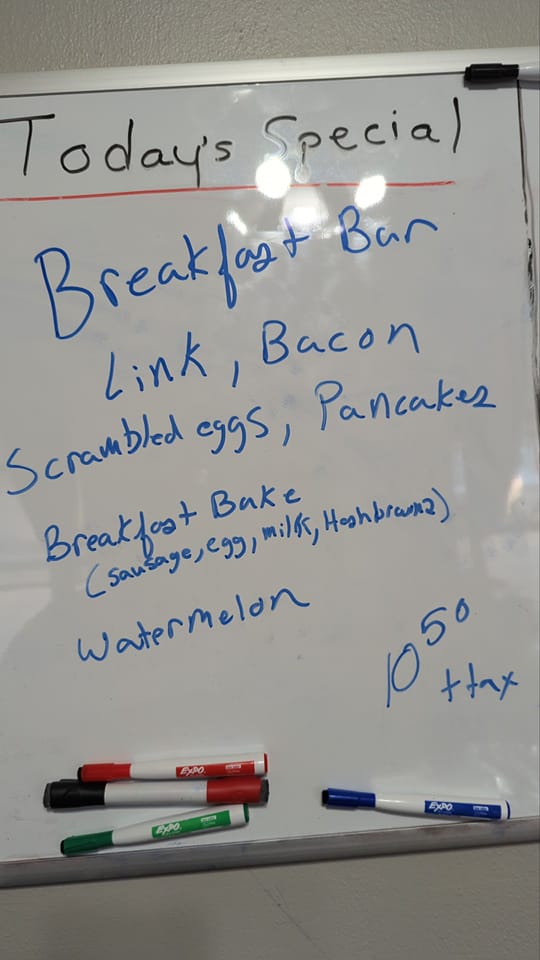 Today's Special
Breakfast Bar
Link, Bacon
Scrambled eggs, Pancakes
Breakfast Bake
(sausage, egg, milk, Hashbrowns)
Watermelon
10 50
+ tax
EXPO
EXPO
EXPO